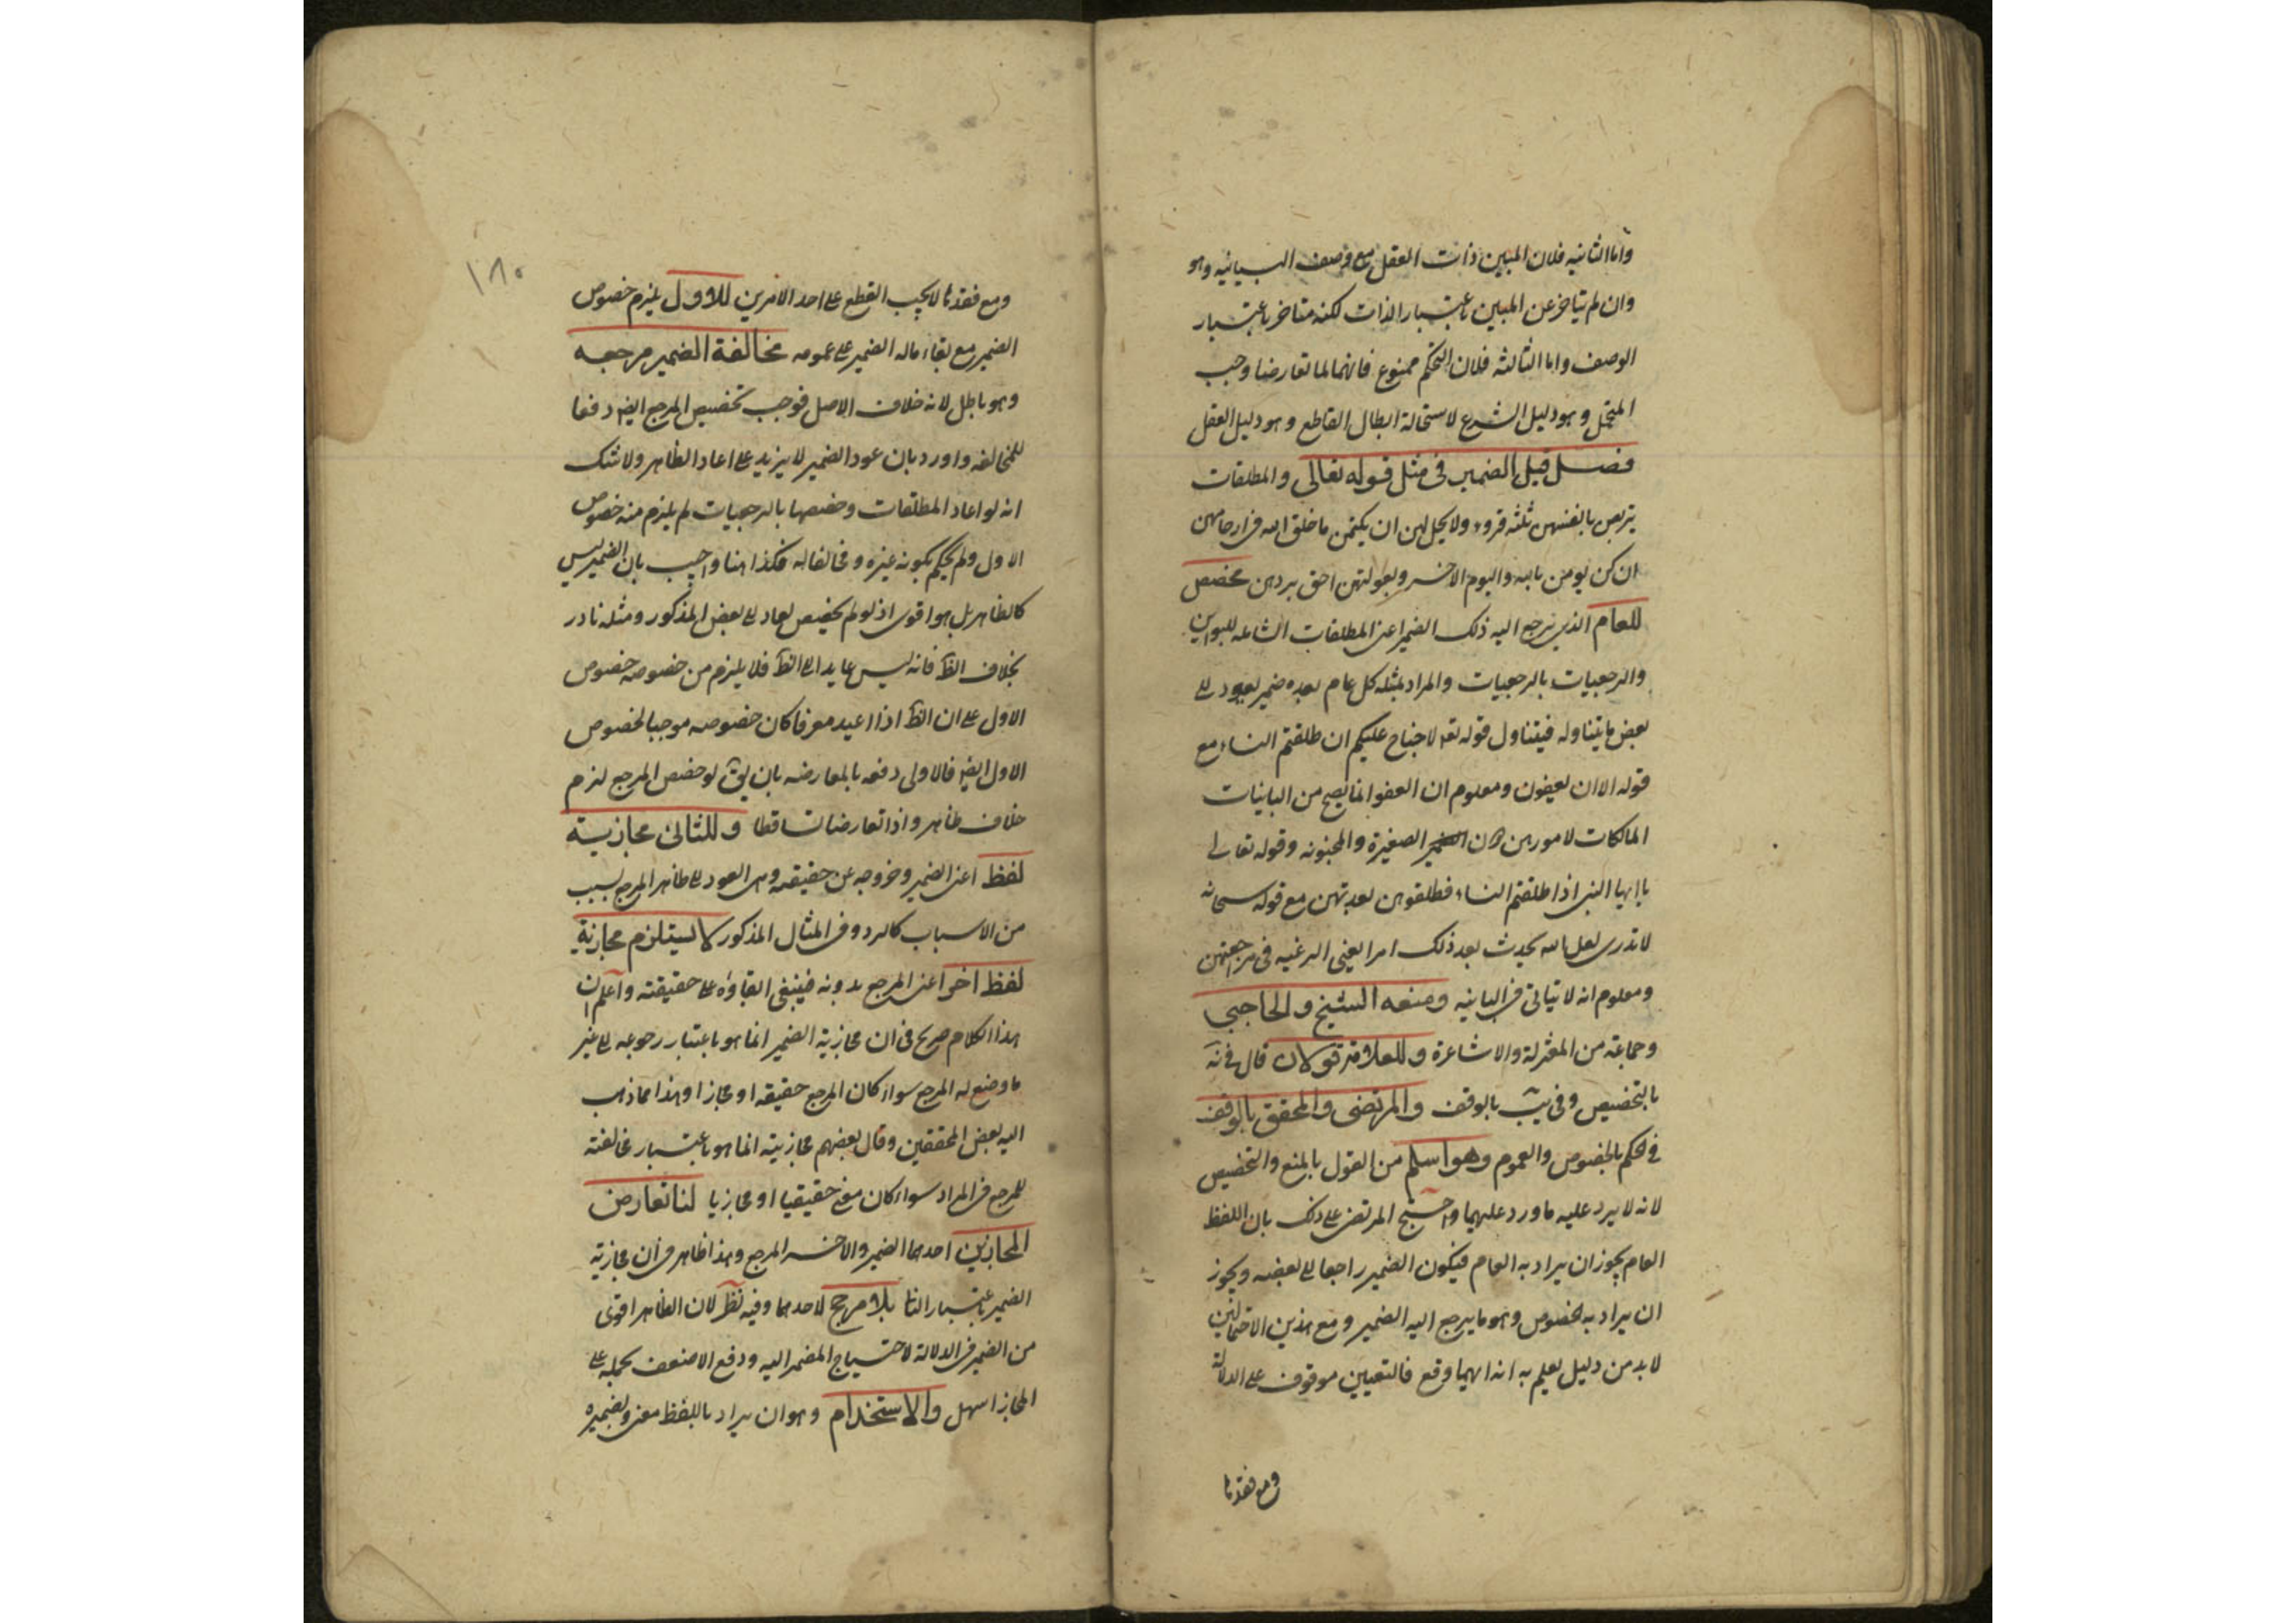 واما الثانيه فلان المبين ذات العقل مع وصف البيانيه وهو
وان لم يتاخر عن المبين باعتبار الذات لكنه متاخر باعتبار
الوصف واما الثالثه فلان التحكم ممنوع فانهما لما تعارضا وجب
المحتمل وهو دليل الشرع لاستحالة ابطال القاطع وهو دليل العقل
فصل قيل الضمير فى مثل قوله تعالى والمطلقات
يتربصن بانفسهن ثلثه قروء ولا يحل لهن ان يكتمن ما خلق الله فى ارحامهن
ان كن يومن بالله واليوم الاخر وبعولتهن احق بردهن مخصص
للعام الذى يرجع اليه ذلك الضمير اعنى المطلقات الشامله للبواين
والرجعيات بالرجعيات والمراد بمثله كل عام بعده ضمير يعود الى
بعض ما يتناوله فيتناول قوله تعه لا جناح عليكم ان طلقتم النساء مع
قوله الا ان يعفون ومعلوم ان العفو انما يصح من البانيات
المالكات لامورهن دون الصغيرة والمجنونه وقوله تعالى
يا ايها النبى اذا طلقتم النساء فطلقوهن لعدتهن مع قوله سبحانه
لا تدرى لعل الله يحدث بعد ذلك امرا يعنى الرغبه فى مراجعتهن
ومعلوم انه لا يتاتى فى الباينه ومنعه الشيخ والحاجبى
وجماعة من المعتزلة والاشاعرة وللعلامة قولان قال فى نه
بالتخصيص وفى يب بالوقف والمرتضى والمحقق بالوقف
فى الحكم بالخصوص والعموم وهو اسلم من القول بالمنع والتخصيص
لانه لا يرد عليه ما ورد عليهما واحتج المرتضى على ذلك بان اللفظ
العام يجوز ان يراد به العام فيكون الضمير راجعا الى بعضه ويجوز
ان يراد به الخصوص وهو ما يرجع اليه الضمير ومع هذين الاحتمالين
لا بد من دليل يعلم به انه ايهما وقع فالتعيين موقوف على الدلالة
ومع فقدها
١٨٠
ومع فقدها لا يجب القطع على احد الامرين للاول يلزم خصوص
الضمير مع بقاء ماله الضمير على عمومه مخالفة الضمير مرجعه
وهو باطل لانه خلاف الاصل فوجب تخصيص المرجع ايضا دفعا
للمخالفه واورد بان عود الضمير لا يزيد على اعاد الظاهر ولا شك
انه لو اعاد المطلقات وخصصها بالرجعيات لم يلزم منه خصوص
الاول ولم يحكم بكونه غيره ومخالفا له فكذا هنا واجيب بان الضمير ليس
كالظاهر بل هو اقوى اذ لو لم يخصص لعاد الى بعض المذكور ومثله نادر
بخلاف الظ فانه ليس عايد الى الظ فلا يلزم من خصوصه خصوص
الاول على ان الظ اذا اعيد معرفا كان خصوصه موجبا لخصوص
الاول ايضا فالاولى دفعه بالمعارضه بان يق لو خصص المرجع لزم
خلاف ظاهر واذا تعارضا تساقطا وللثانى مجازية
لفظ اعنى الضمير وخروجه عن حقيقته وهى العود الى ظاهر المرجع بسبب
من الاسباب كالرد وفى المثال المذكور لا يستلزم مجازية
لفظ اخر اعنى المرجع بدونه فينبغى ابقاؤه على حقيقته واعلم ان
هذا الكلام صريح فى ان مجازية الضمير انما هو باعتبار رجوعه الى غير
ما وضع له المرجع سواء كان المرجع حقيقه او مجازا وهذا مما ذهب
اليه بعض المحققين وقال بعضهم مجازيته انما هو باعتبار مخالفته
للمرجع فى المراد سواء كان معنى حقيقيا او مجازيا لنا تعارض
المجازين احدهما الضمير والاخر المرجع وهذا ظاهر فى ان مجازية
الضمير باعتبار الثا بلا مرجح لاحدهما وفيه نظر لان الظاهر اقوى
من الضمير فى الدلالة لاحتياج المضمر اليه ودفع الاضعف بحمله على
المجاز اسهل والاستخدام وهو ان يراد باللفظ معنى وبضميره